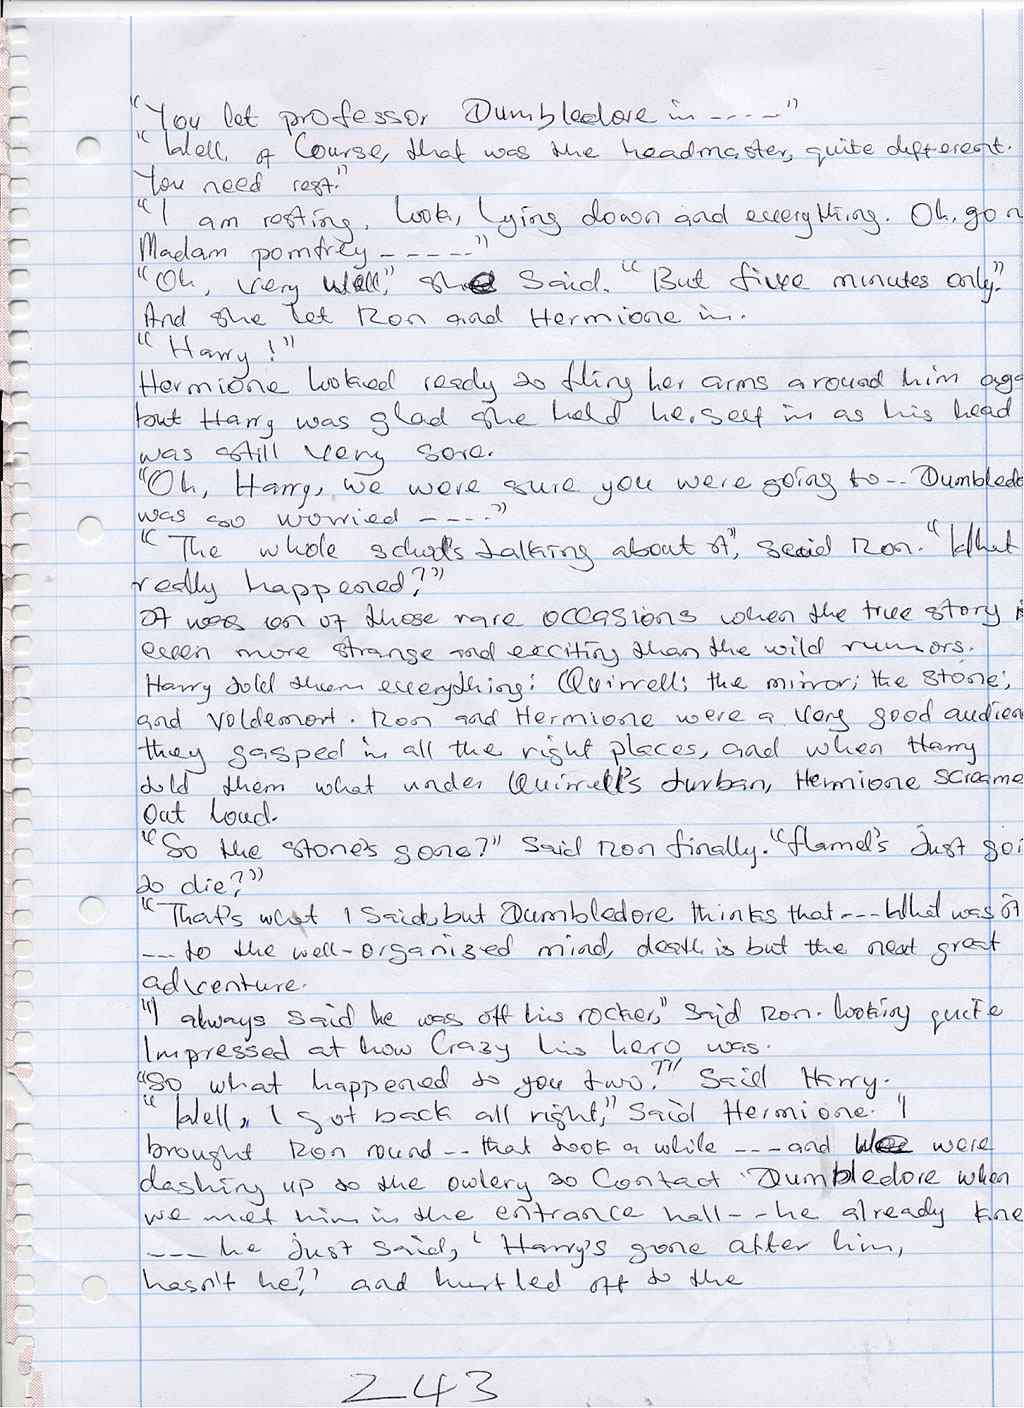 "You let professor Dumbledore in ----"
"Well, of Course, that was the headmaster, quite different.
You need rest."
"I am resting, look, lying down and everything. Oh, go on
Madam pomfrey -----"
"Oh, very well," she said. "But five minutes only."
And she let Ron and Hermione in.
"Harry!"
Hermione looked ready to fling her arms around him aga
but Harry was glad she held herself in as his head
was still very sore.
"Oh, Harry, we were sure you were going to -- Dumbledo
was so worried ----"
"The whole school's talking about it", said Ron. "What
really happened?"
It was on of those rare occasions when the true story is
even more strange and exciting than the wild rumors.
Harry told them everything: Quirrell; the mirror; the Stone;
and Voldemort. Ron and Hermione were a very good audien
they gasped in all the right places, and when Harry
told them what under Quirrell's turban, Hermione screame
out loud.
"So the stone's gone?" said Ron finally. "flamel's Just goi
to die?"
"That's what I said, but Dumbledore thinks that --- What was it
--- to the well-organized mind, death is but the next great
adventure.
"I always said he was off his rocker," said Ron. looking quite
Impressed at how Crazy his hero was.
"So what happened to you two?" Said Harry.
"Well, I got back all right," said Hermione. "I
brought Ron round -- that took a while --- and we were
dashing up to the owlery to Contact Dumbledore when
we met him in the entrance hall -- he already kne
---- he Just said, 'Harry's gone after him,
hasn't he?' and hurtled off to the
243